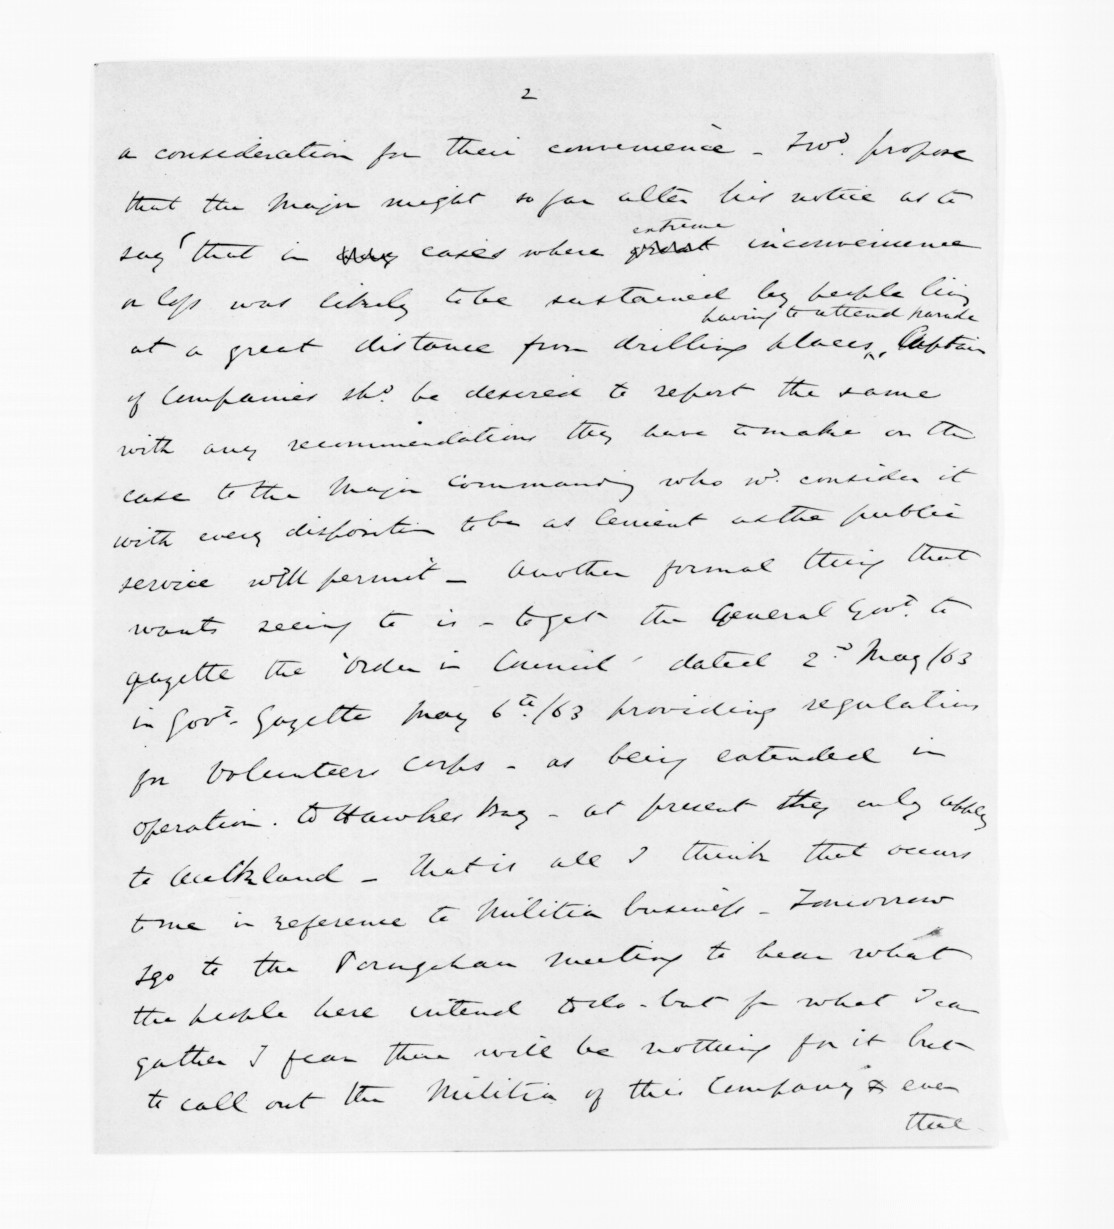 2
a consideration for their convenience - I wd. propose
that the Major might so far alter his notice as to
extreme
say 'that in cases where inconvenience
or loss was likely to be sustained by people living
having to attend parade
at a great distance from drilling places, Captain
of Companies shd. be desired to report the same
with any recommendations they have to make on the
case to the Major Commanding who wd. consider it
with every disposition to be as lenient as the public
service will permit - Another formal thing that
wants seeing to is - to get the General Govt. to
gazette the 'Order in Council' dated 2d May/63
in Govt. Gazette May 6th./63 providing regulations
for Volunteers Corps - as being extended in
operation. to Hawkes Bay - at present they only apply
to Auckland - That is all I think that occurs
to me in reference to Militia business - Tomorrow
I go to the Porangahau meeting to hear what
the people here intend to do - but fr what I can
gather I fear there will be nothing for it but
to call out the Militia of this Company & even
then